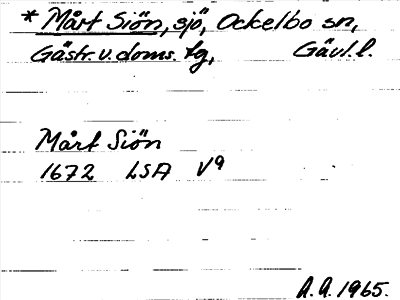 * Mårt Siön, sjö, Ockelbo sn,
Gästr. v. doms. tg, Gävl. l.
Mårt Siön
1672 LSA V9
A.A. 1965.